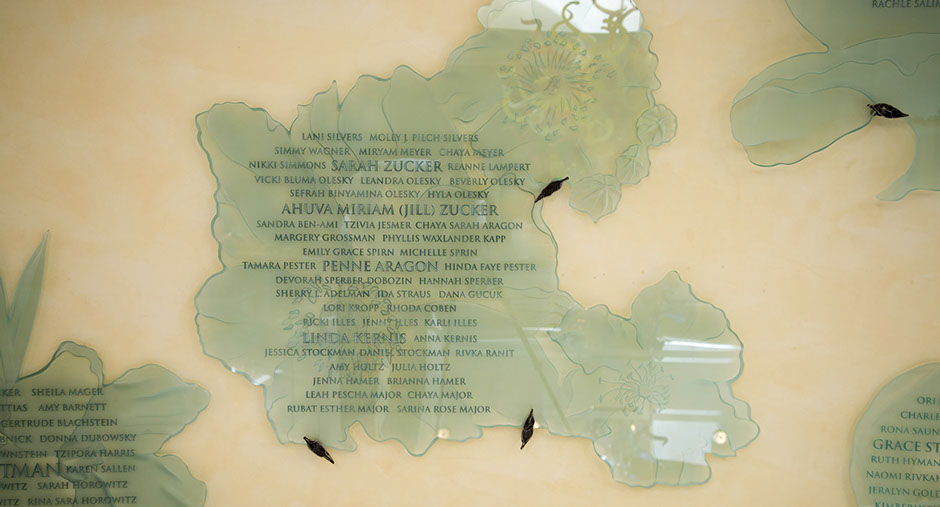 RACHLE SALIM
LANI SILVERS MOLLY J. PILCH SILVERS
SIMMY WAGNER MIRYAM MEYER CHAYA MEYER
NIKKI SIMMONS SARAH ZUCKER REANNE LAMPERT
VICKI BLUMA OLESKY LEANDRA OLESKY BEVERLY OLESKY
SEFRAH BINYAMINA OLESKY HYLA OLESKY
AHUVA MIRIAM (JILL) ZUCKER
SANDRA BEN-AMI TZIVIA JESMER CHAYA SARAH ARAGON
MARGERY GROSSMAN PHYLLIS WAXLANDER KAPP
EMILY GRACE SPIRN MICHELLE SPRIN
TAMARA PESTER PENNE ARAGON HINDA FAYE PESTER
DEVORAH SPERBER DOBOZIN HANNAH SPERBER
SHERRY L. ADELMAN IDA STRAUS DANA GUCUK
LORI KROPP RHODA COBEN
RICKI ILLES JENNY ILLES KARLI ILLES
LINDA KERNIS ANNA KERNIS
JESSICA STOCKMAN DANIEL STOCKMAN RIVKA RANIT
AMY HOLTZ JULIA HOLTZ
JENNA HAMER BRIANNA HAMER
LEAH PESCHA MAJOR CHAYA MAJOR
RUBAT ESTHER MAJOR SARINA ROSE MAJOR
KER SHEILA MAGER
TTIAS AMY BARNETT
GERTRUDE BLACHSTEIN
BNICK DONNA DUBOWSKY
WNSTEIN TZIPORA HARRIS
TMAN KAREN SALLEN
WITZ SARAH HOROWITZ
WITZ RINA SARA HOROWITZ
ORI
CHARLE
RONA SAUN
GRACE ST
RUTH HYMAN
NAOMI RIVKAH
JERALYN GOLD
KIMBERLY